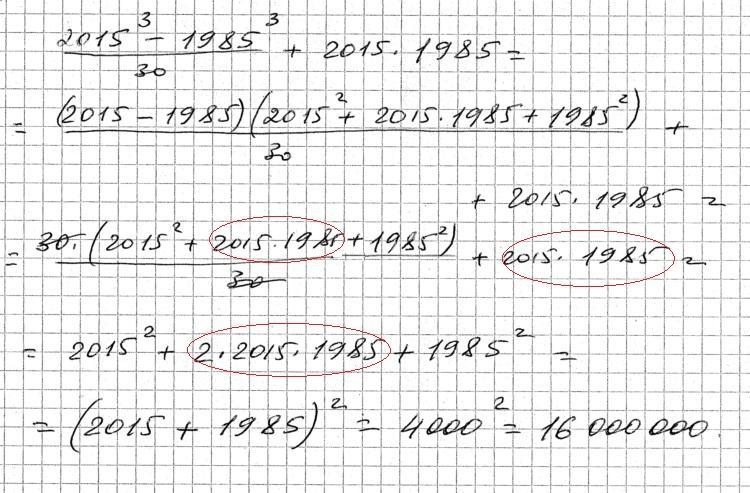 (2015³ − 1985³)/30 + 2015 · 1985 =
= (2015 − 1985)(2015² + 2015 · 1985 + 1985²)/30 +
+ 2015 · 1985 =
= 30 · (2015² + 2015 · 1985 + 1985²)/30 + 2015 · 1985 =
= 2015² + 2 · 2015 · 1985 + 1985² =
= (2015 + 1985)² = 4000² = 16 000 000.